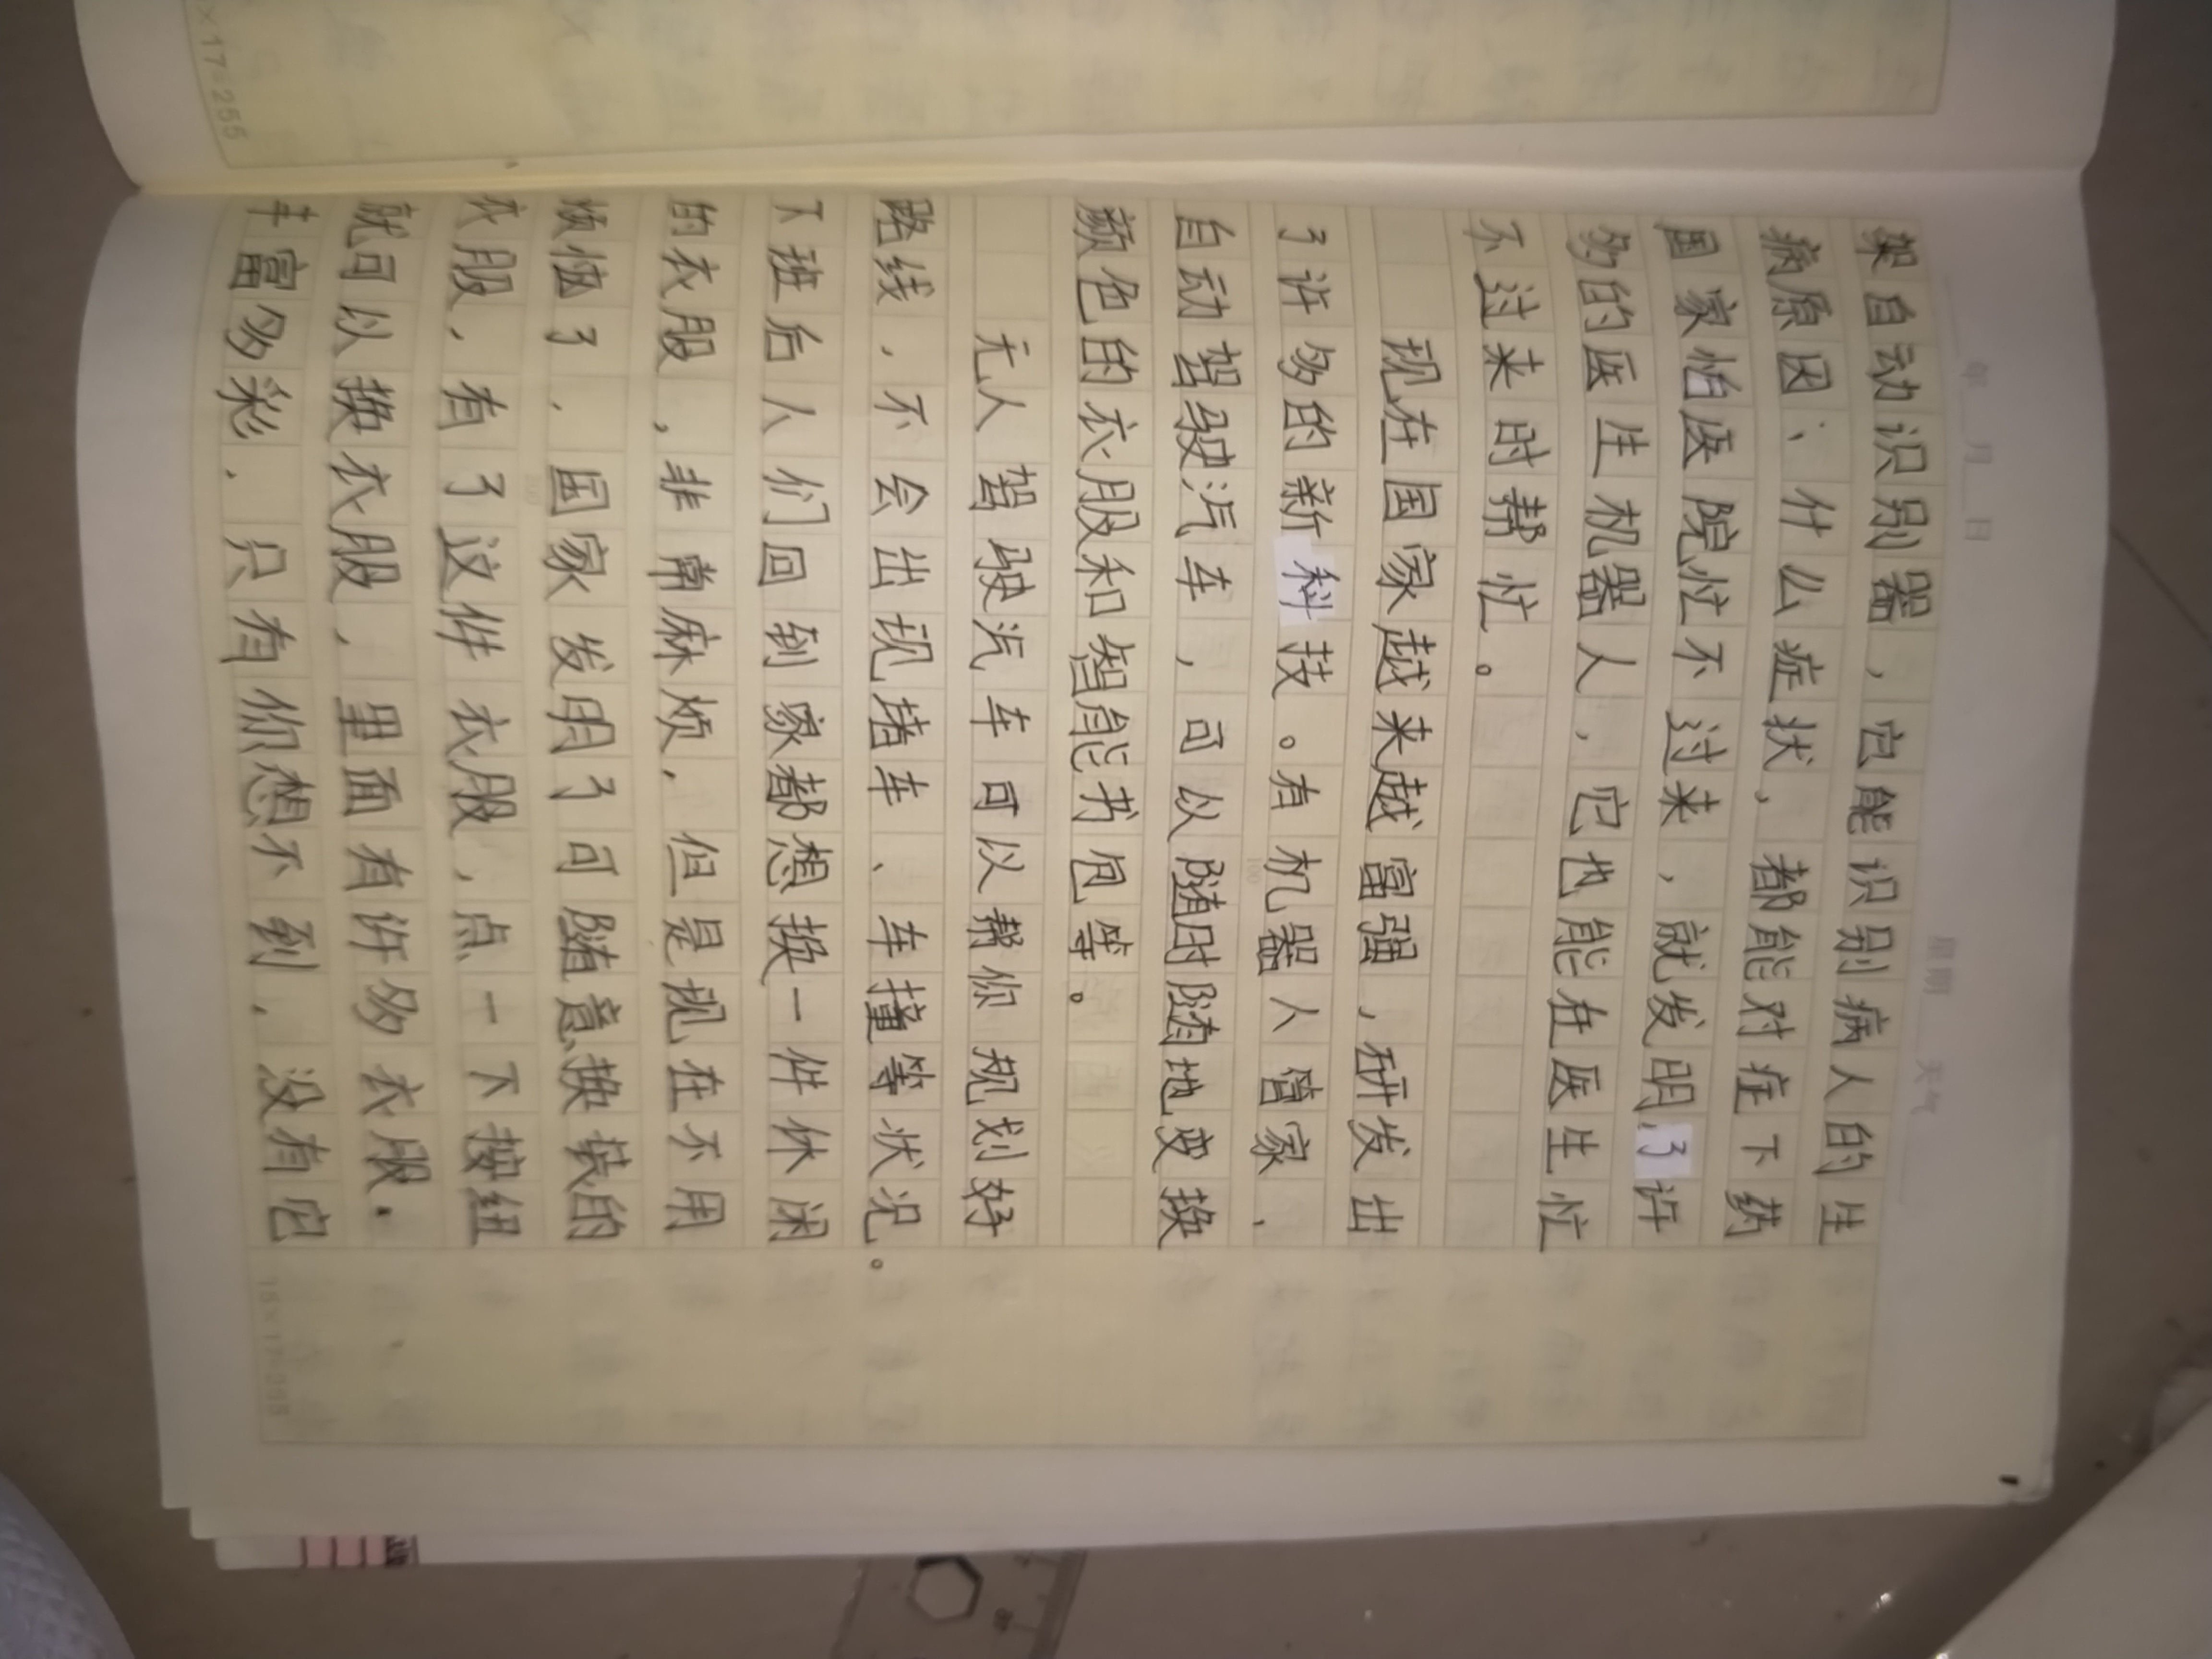 年 月 日 星期 天气
架自动识别器，它能识别病人的生
病原因、什么症状，都能对症下药
国家怕医院忙不过来，就发明了许
多的医生机器人，它也能在医生忙
不过来时帮忙。
现在国家越来越富强，研发出
了许多的新科技。有机器人管家、
自动驾驶汽车，可以随时随地变换
颜色的衣服和智能书包等。
无人驾驶汽车可以帮你规划好
路线，不会出现堵车、车撞等状况。
下班后人们回到家都想换一件休闲
的衣服，非常麻烦，但是现在不用
烦恼了，国家发明了可随意换装的
衣服，有了这件衣服，点一下按纽
就可以换衣服，里面有许多衣服。
丰富多彩，只有你想不到，没有它
15×17=255
×17=255
100